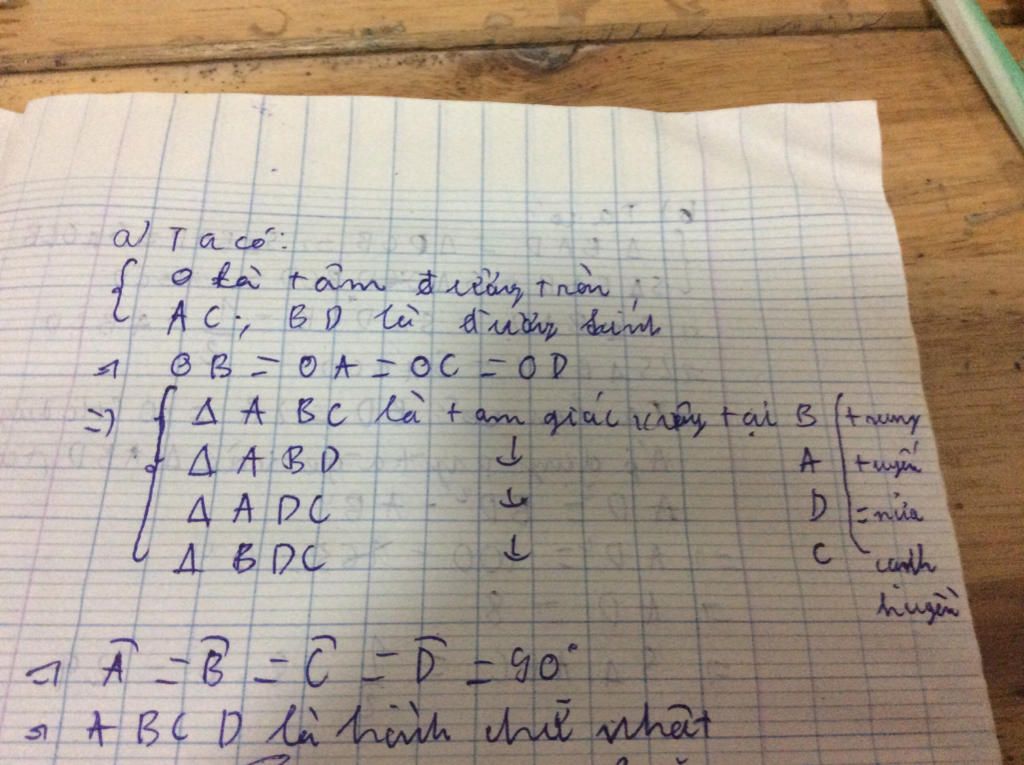 a) Ta có:
{ O là tâm đường tròn,
AC; BD là đường kính
=> OB = OA = OC = OD
=> { Δ ABC là tam giác vuông tại B ( trung
Δ ABD ↓ A tuyến
Δ ADC ↓ D = nửa
Δ BDC ↓ C cạnh
huyền
=> A = B = C = D = 90°
=> ABCD là hình chữ nhật